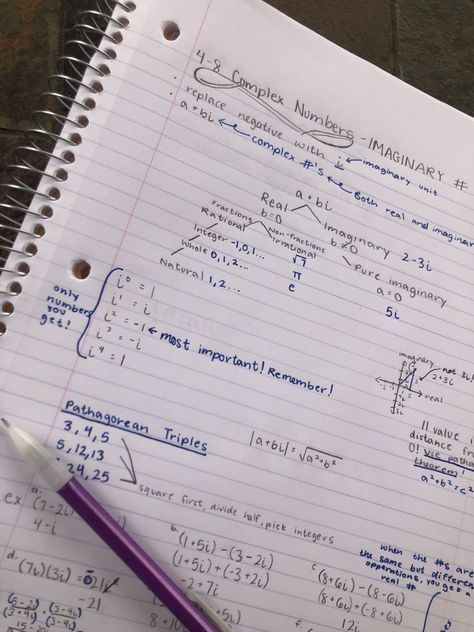 4-8 Complex Numbers - IMAGINARY #
· replace negative with i ← imaginary unit
· a + bi ← complex #'s ← Both real and imaginar
a + bi
Real Imaginary 2-3i
b=0 b≠0
Fractions Non-fractions
Rational Irrational Pure imaginary
Integer -1,0,1... √7 a=0
Whole 0,1,2... π 5i
Natural 1,2... e
only numbers you get!
i⁰ = 1
i¹ = i
i² = -1 ← most important! Remember!
i³ = -i
i⁴ = 1
imaginary
not 3i!
2+3i
real
Pathagorean Triples
3, 4, 5
5, 12, 13
24, 25
square first, divide half, pick integers
|a+bi| = √a²+b²
|| value
distance fro
0! use patha
theorem!
a²+b²=c²
ex a. (7-2i)
4-i
b. (1+5i)-(3-2i)
(1+5i)+(-3+2i)
-2+7i
c. (8+6i)-(8-6i)
(8+6i)+(-8+6i)
12i
when the #s are
the same but differen
opperations, you get a
real #
d. (7i)(3i) = 21i
-21